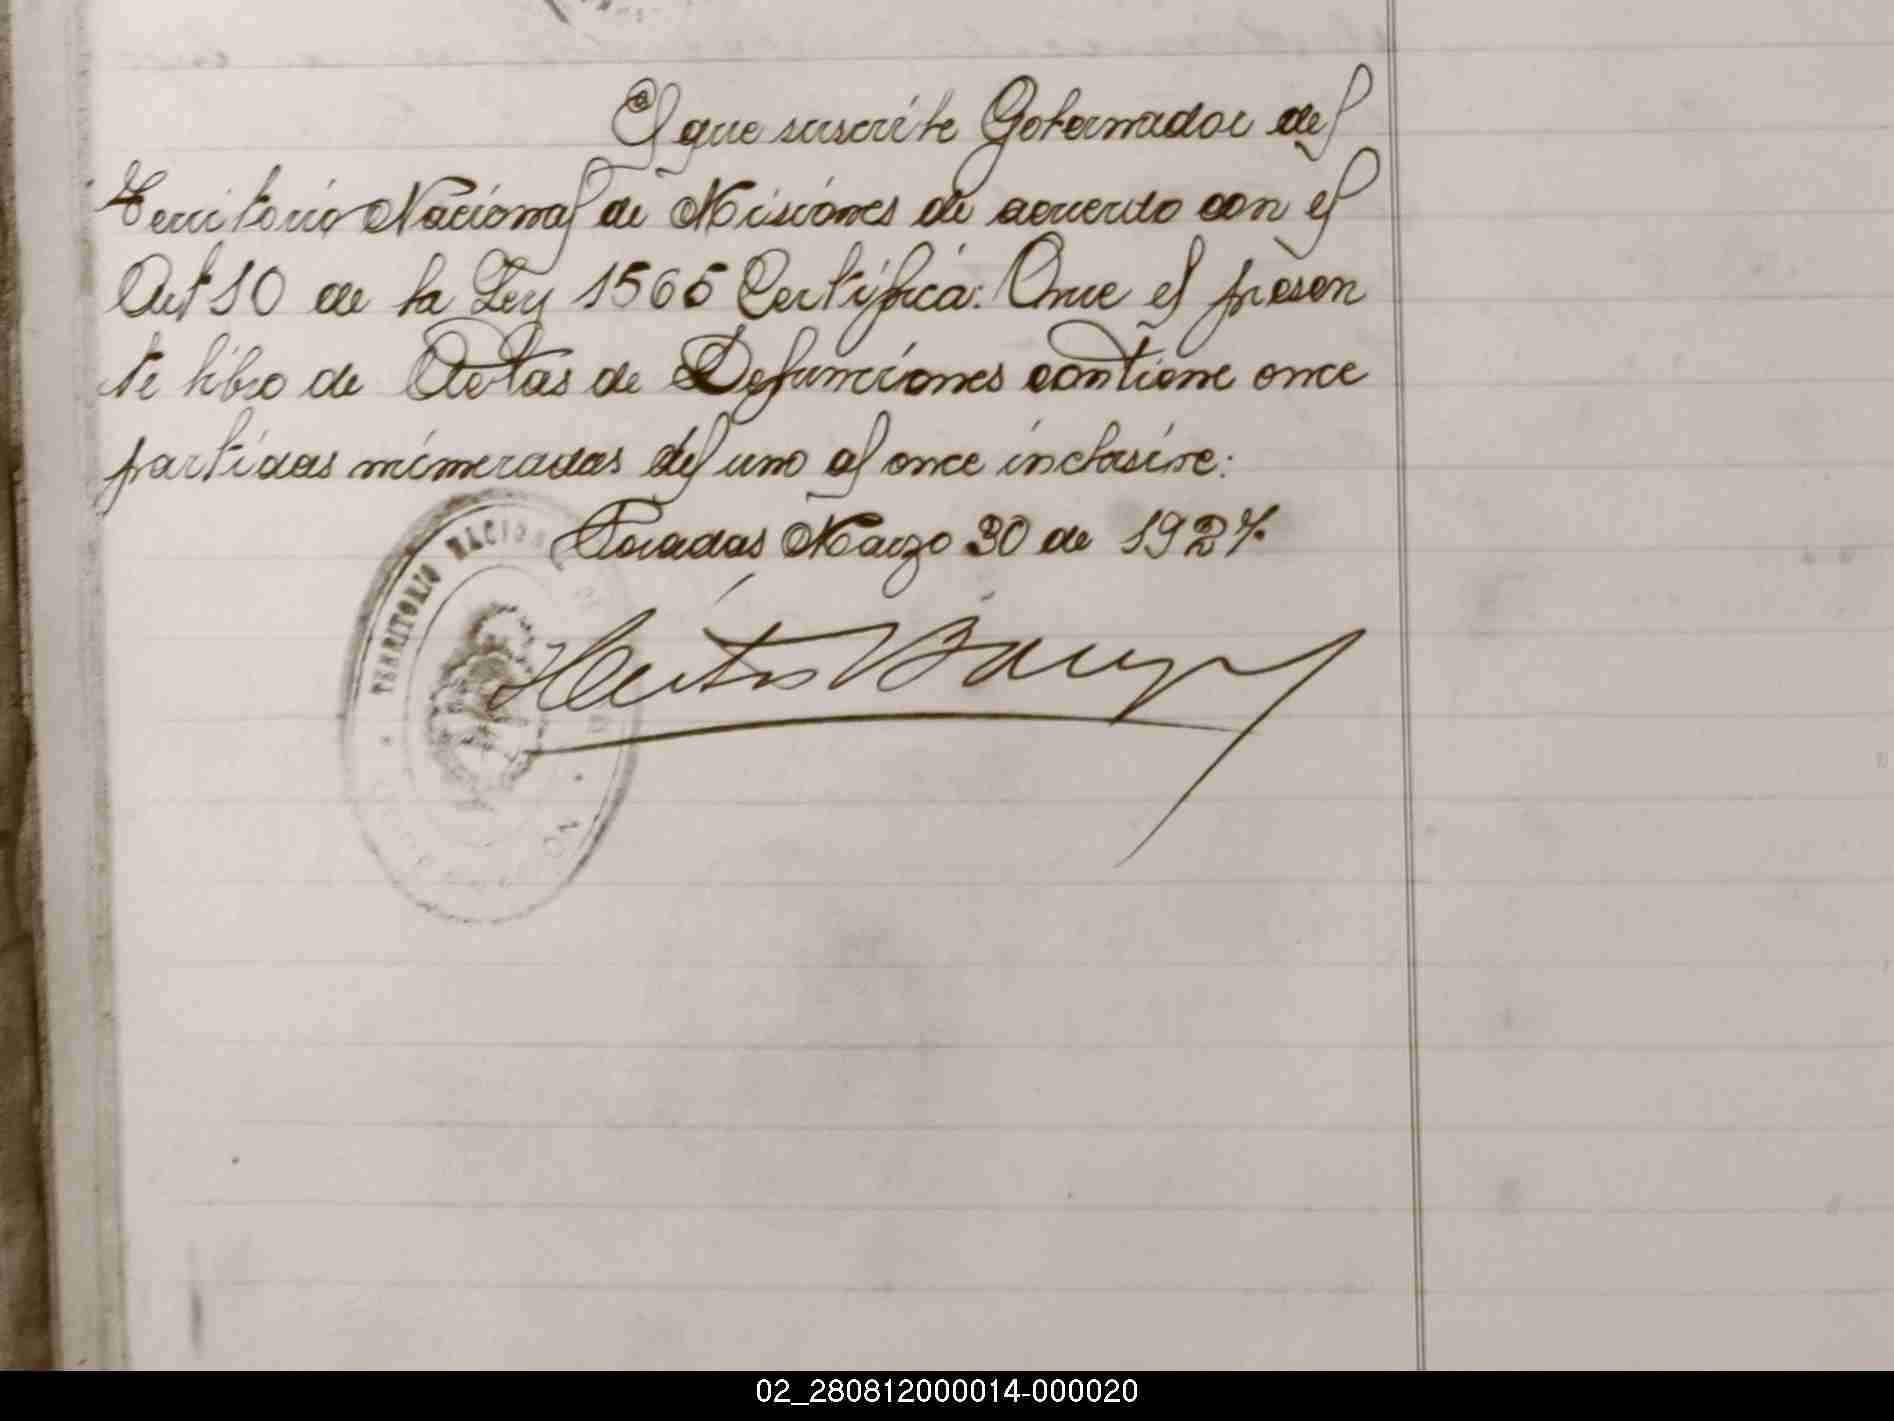 El que suscribe Gobernador del
Territorio Nacional de Misiones de acuerdo con el
Art 10 de la Ley 1565 Certifica: Que el presen
te libro de Actas de Defunciones contiene once
partidas numeradas del uno al once inclusive:
Posadas Marzo 30 de 1927.
Hector Barreyro
TERRITORIO NACION
02_280812000014-000020